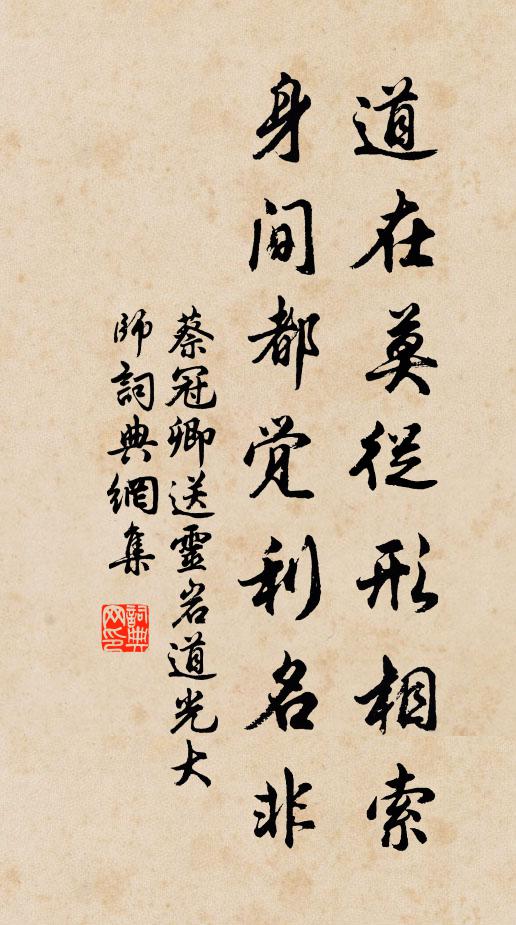 道在莫從形相索
身間都覺利名非
蔡冠卿送靈岩道光大
師詞典網集
詞典
网印